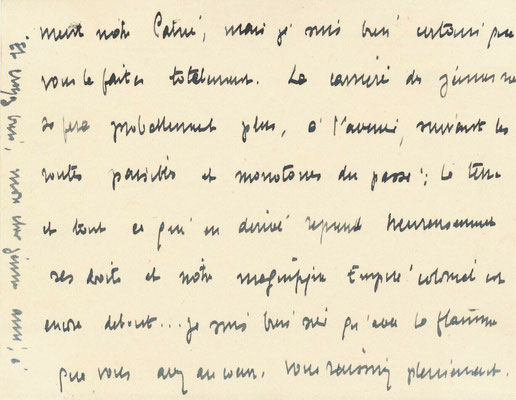 ment notre Patrie, mais je suis bien certain que
vous le faites totalement. La carrière des jeunes ne
se fera probablement plus, à l'avenir, suivant les
routes paisibles et monotones du passé ; la terre
et tout ce qui en dérive reprend heureusement
ses droits et notre magnifique Empire colonial est
encore debout... Je suis bien sûr qu'avec la flamme
que vous avez au cœur, vous réussirez pleinement.
Et croyez bien, mon cher jeune ami, à